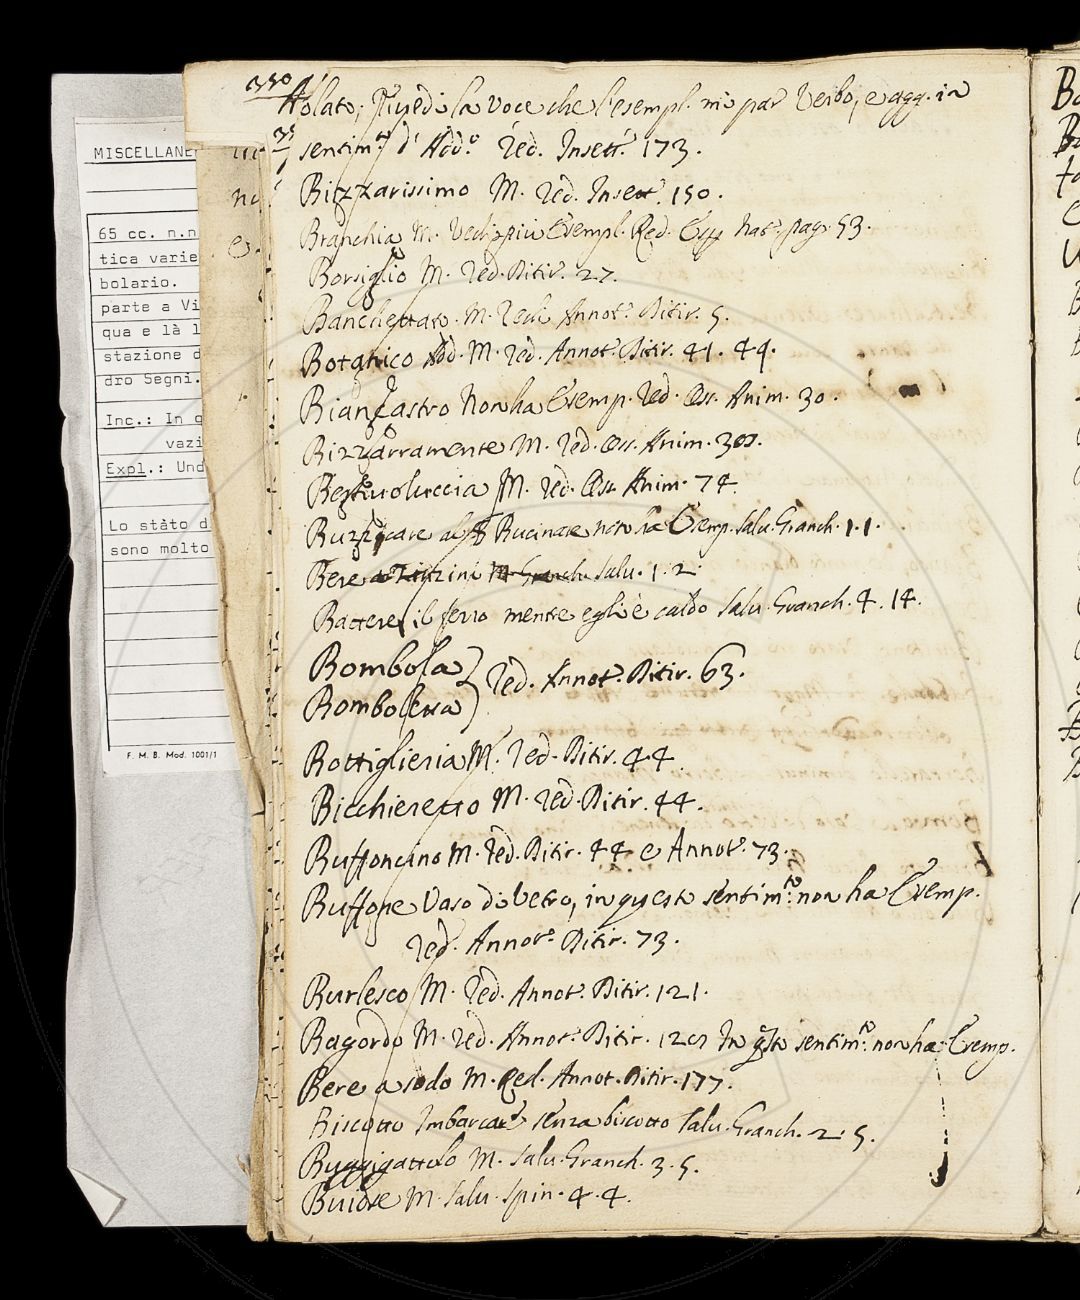 350
Aolato, Si vedi la Voce che l'esempl. mi par Verbo, e agg. in
sentim.to d' Add.o Red. Insett. 173.
Bizzarissimo M. Red. Insett. 150.
Branchia M. Vedi più Esempl. Red. Esp. nat. pag. 53.
Borsiglio M. Red. Ditir. 27.
Banchettato. M. Red. Annot. Ditir. 5.
Botanico Add. M. Red. Annot. Ditir. 41. 49.
Biancastro Non ha Esemp. Red. Oss. Anim. 30.
Bizzarramente M. Red. Oss. Anim. 
Bestiuoluccia M. Red. Oss. Anim. 74.
Buzzicare al § Bucinare non ha Esemp. Salu. Granch. 1. 1.
Bere a Zinzini M. Granch. Salu. 1. 2.
Battere il ferro mentre egli è caldo Salu. Granch. 4. 14.
Bombola
Bomboletta } Red. Annot. Ditir. 63.
Bottiglieria M. Red. Ditir. 44
Bicchieretto M. Red. Ditir. 44.
Buffoncino M. Red. Ditir. 44 e Annot. 73.
Buffone Vaso di Vetro, in questo sentim.to non ha Esemp.
Red. Annot. Ditir. 73.
Burlesco M. Red. Annot. Ditir. 121.
Bagordo M. Red. Annot. Ditir. In qsto sentim.to non ha Esemp.
Bere a sodo M. Red. Annot. Ditir. 177.
Biscotto Imbarcar senza biscotto Salu. Granch. 2. 5.
Buggigattolo M. Salu. Granch. 3. 5.
Buiose M. Salu. Spin. 4. 4.
MISCELLANE
65 cc. n.n
tica varie
bolario.
parte a Vi
qua e là l
stazione d
dro Segni.
Inc.: In q
vazi
Expl.: Und
Lo stàto d
sono molto
F. M. B. Mod. 1001/1